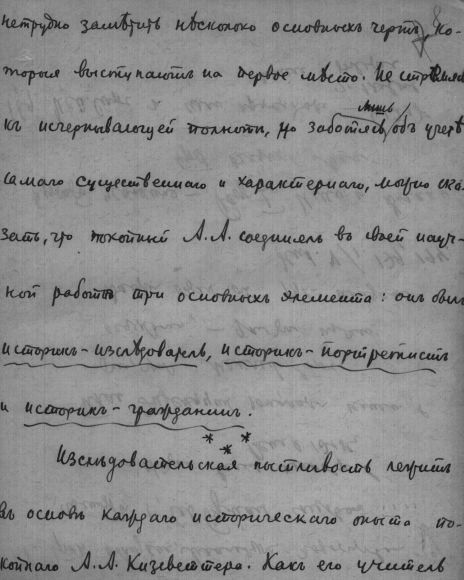 нетрудно замѣтить нѣсколько основныхъ чертъ, ко-
торыя выступаютъ на первое мѣсто. Не стремясь
лишь
къ исчерпывающей полнотѣ, но заботясь объ учетѣ
самаго существеннаго и характернаго, можно ска-
зать, что покойный А.А. соединялъ въ своей науч-
ной работѣ три основныхъ элемента: онъ былъ
историкъ-изслѣдователь, историкъ-портретистъ
и историкъ-гражданинъ.
* * *
Изслѣдовательская пытливость лежитъ
въ основѣ каждаго историческаго опыта по-
койнаго А.А. Кизеветтера. Какъ его учитель